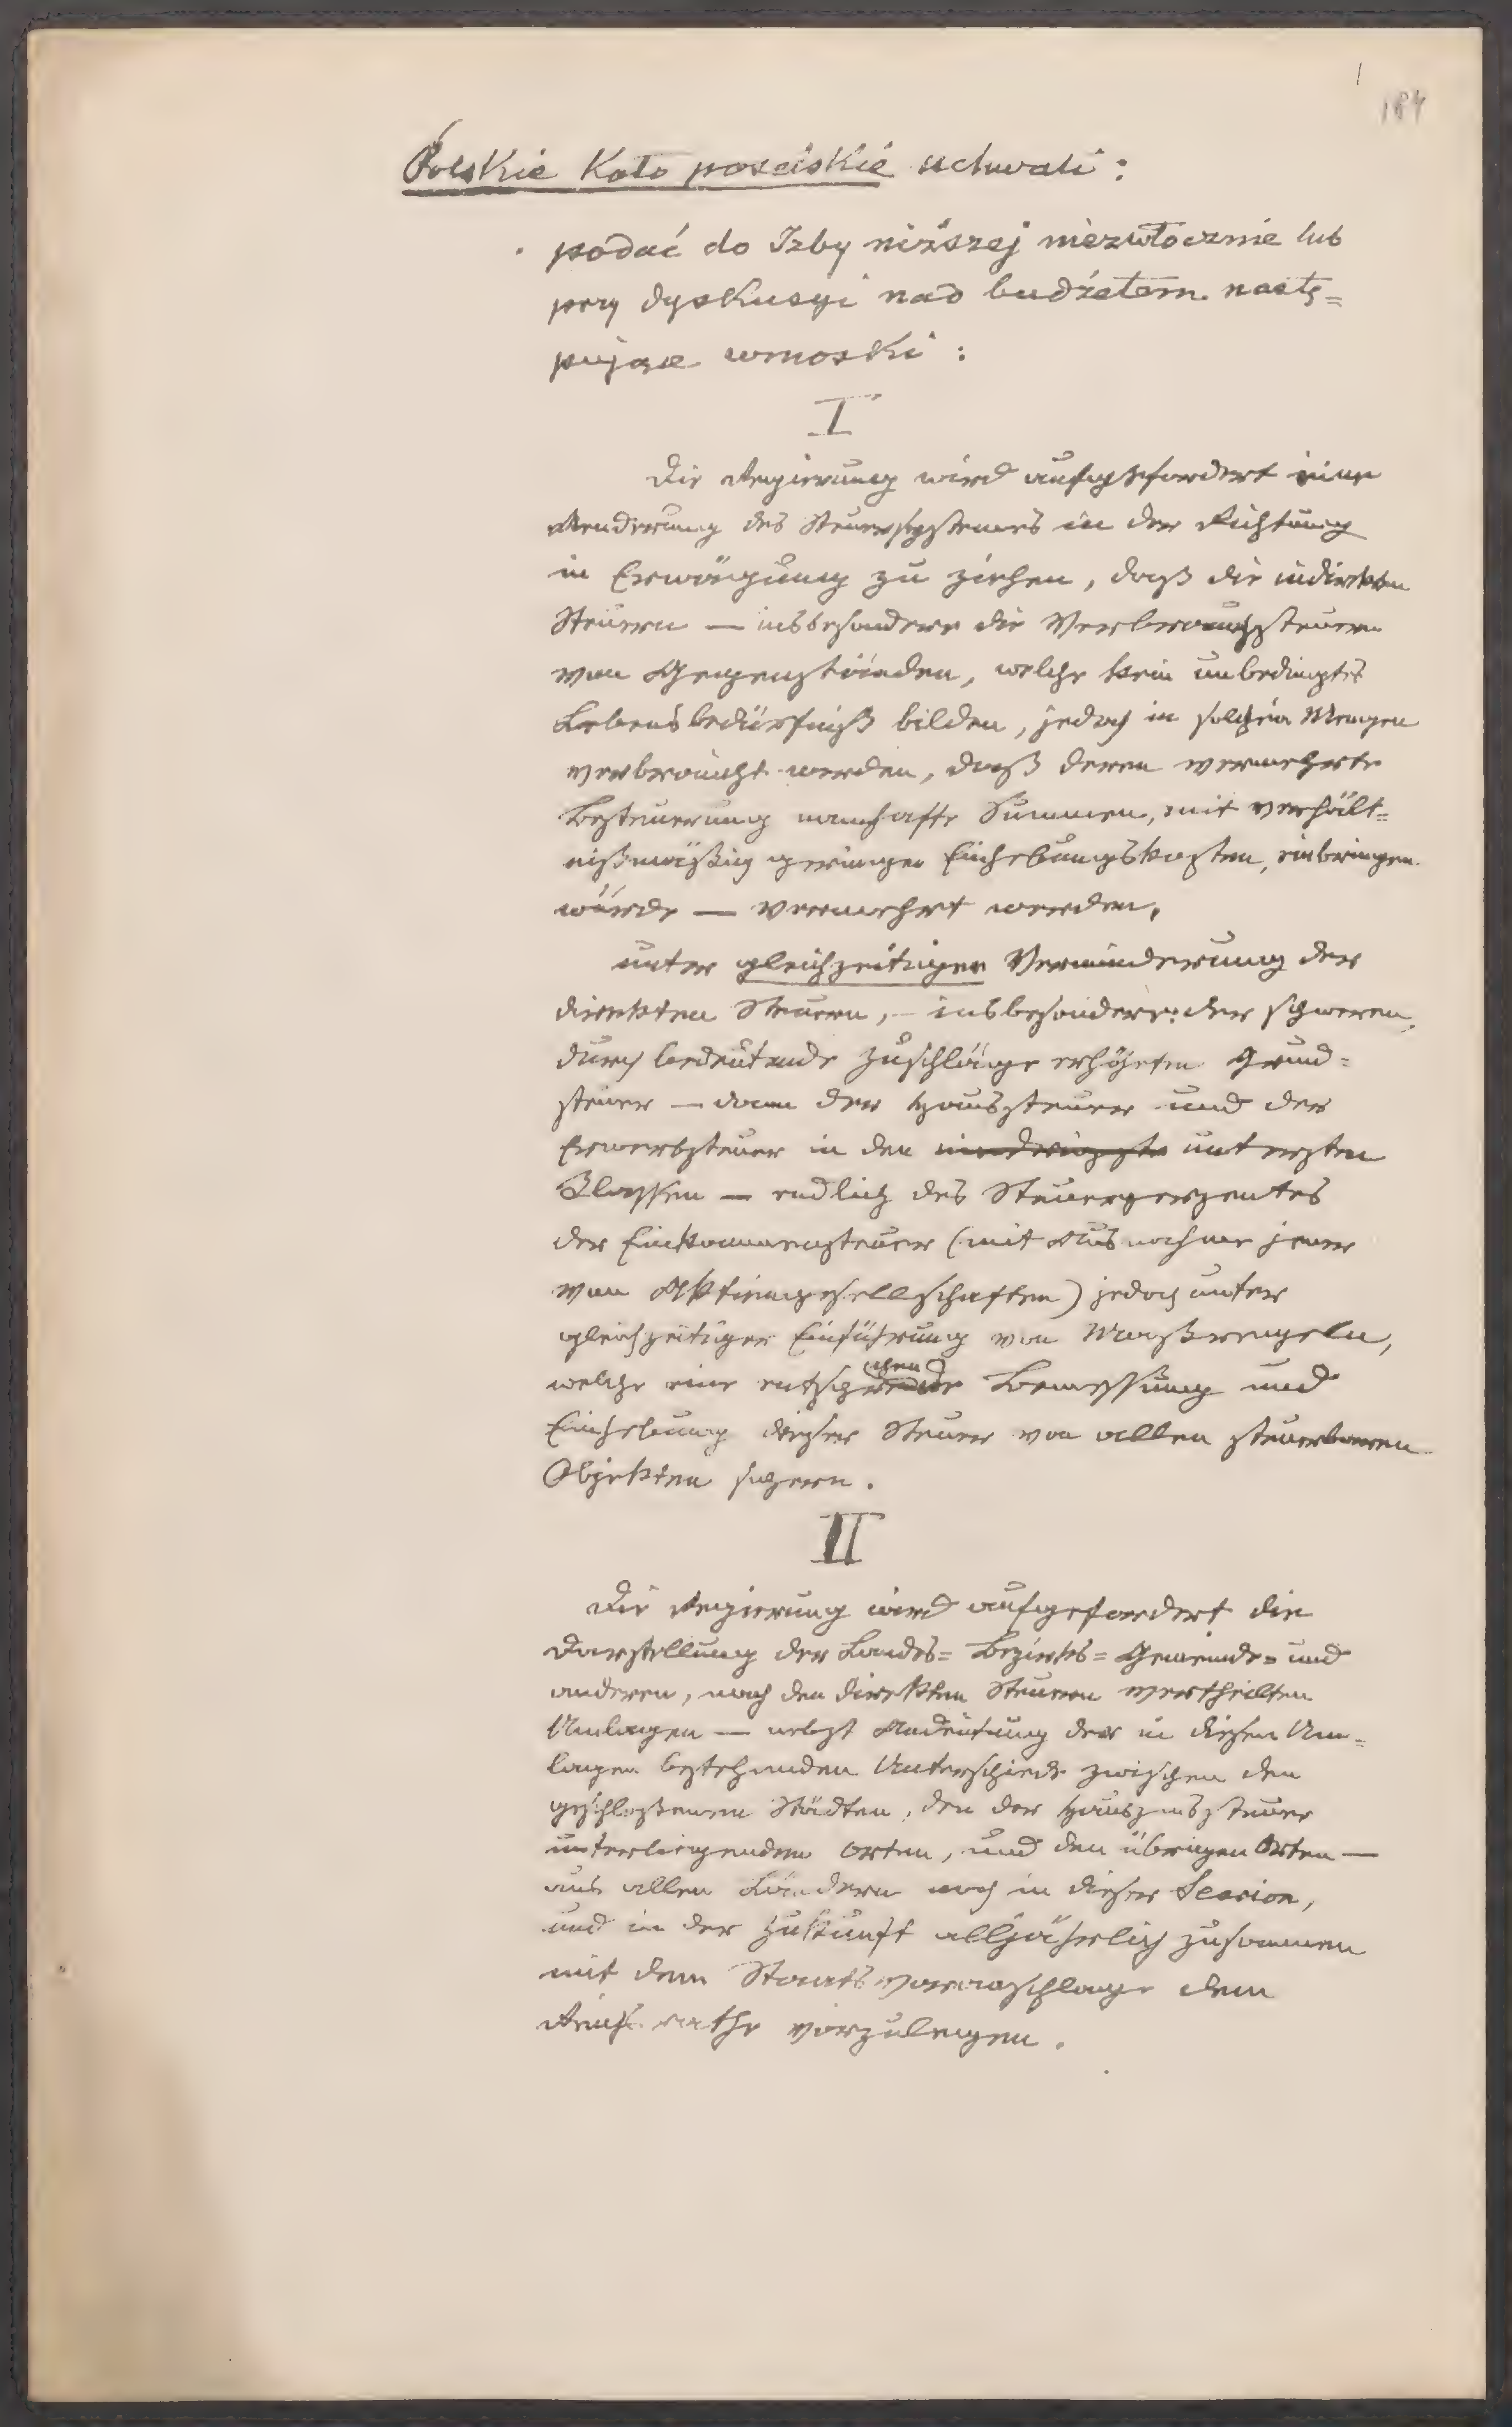 184
Polskie Koło poselskie uchwali:
podać do Izby niższej niezwłocznie lub
przy dyskusyi nad budżetem nastę=
pujące wnioski:
I
Die Regierung wird aufgefordert eine
Aenderung des Steuersystemes in der Richtung
in Erwägung zu ziehen, daß die indirekten
Steuern — insbesondere die Verbrauchssteuern
von Gegenständen, welche kein unbedingtes
Lebensbedürfniß bilden, jedoch in solchen Mengen
verbraucht werden, daß deren vermehrte
Besteuerung namhafte Summen, mit verhält=
nißmäßig geringen Einhebungskosten, einbringen
würde — vermehrt werden,
unter gleichzeitiger Verminderung der
direkten Steuern, — insbesondere: der schweren,
durch bedeutende Zuschläge erhöhten Grund=
steuer — dann der Haussteuer und der
Erwerbsteuer in den niedrigste untersten
Klassen — endlich des Steuerperzentes
der Einkommensteuer (mit Ausnahme jener
von Aktiengesellschaften) jedoch unter
gleichzeitiger Einführung von Maßregeln,
welche eine entsprechende Bemessung und
Einhebung dieser Steuer von allen steuerbaren
Objekten sichern.
II
Die Regierung wird aufgefordert die
Darstellung der Landes= Bezirks= Gemeinde= und
anderen, nach den direkten Steuern vertheilten
Umlagen — nebst Andeutung der in diesen Um=
lagen bestehenden Unterschiede zwischen den
geschlossenen Städten, den der Hauszinssteuer
unterliegenden Orten, und den übrigen Orten —
aus allen Ländern noch in dieser Session,
und in der Zukunft alljährlich zusammen
mit dem Staatsvoranschlage dem
Reichsrathe vorzulegen.